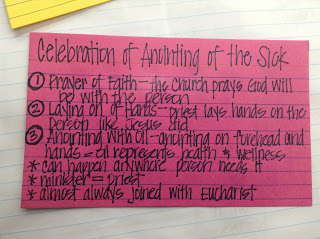 Celebration of Anointing of the Sick
① Prayer of Faith - the church prays God will
be with the person
② Laying on of Hands - priest lays hands on the
person like Jesus did
③ Anointing with Oil - anointing on forehead and
hands = oil represents health & wellness
* can happen anywhere person needs it
* minister = priest
* almost always joined with Eucharist